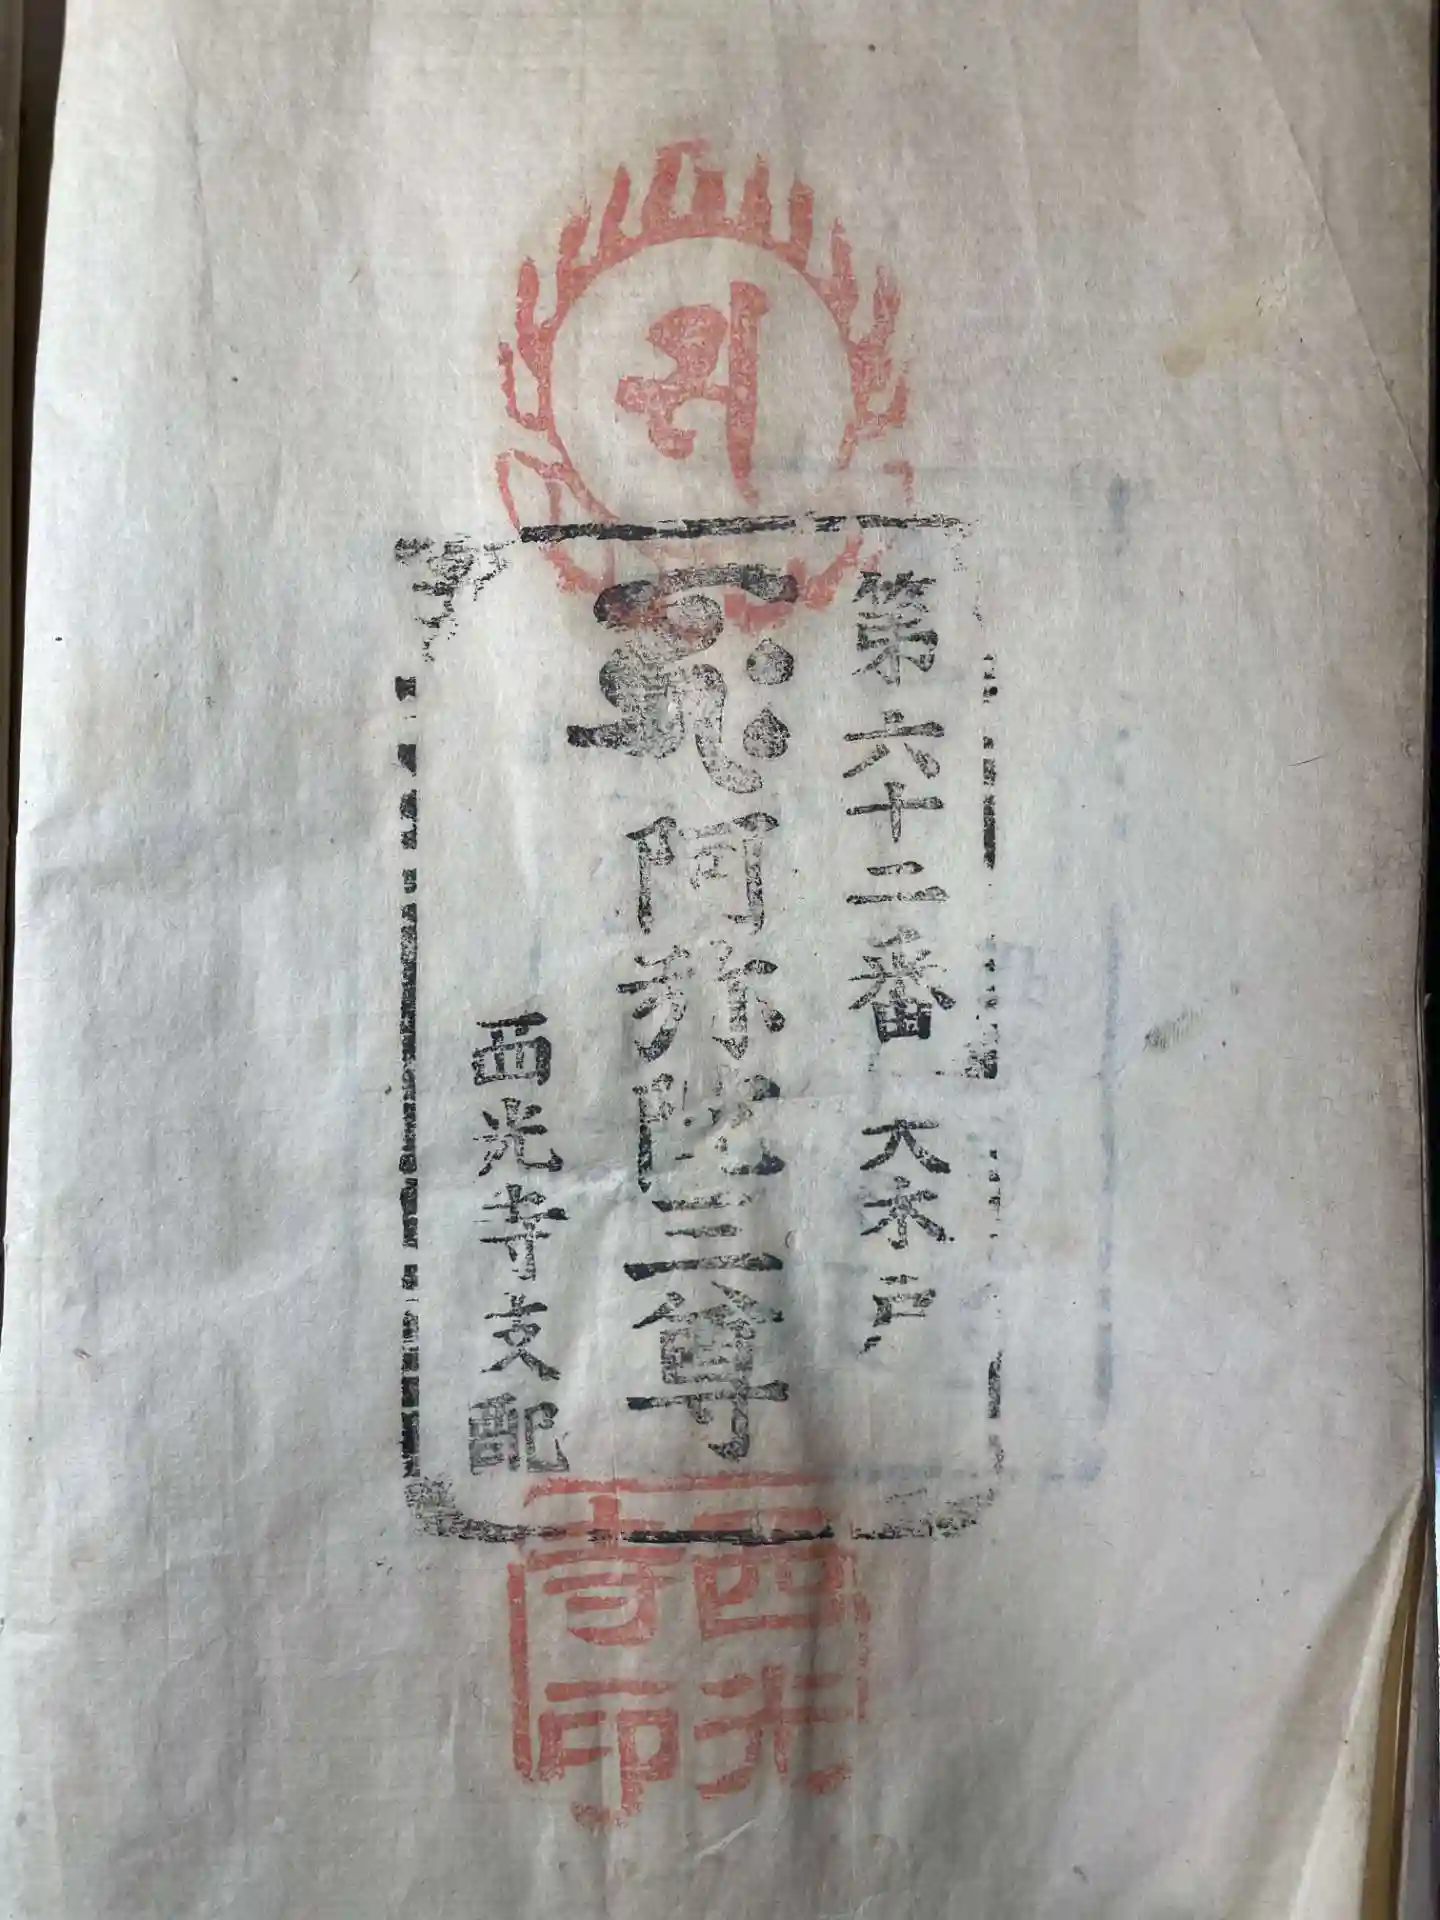 𑖭
第六十二番 大木戸
𑖮𑖿𑖨𑖱𑖾 阿弥陀三尊
西光寺支配
西光
寺印